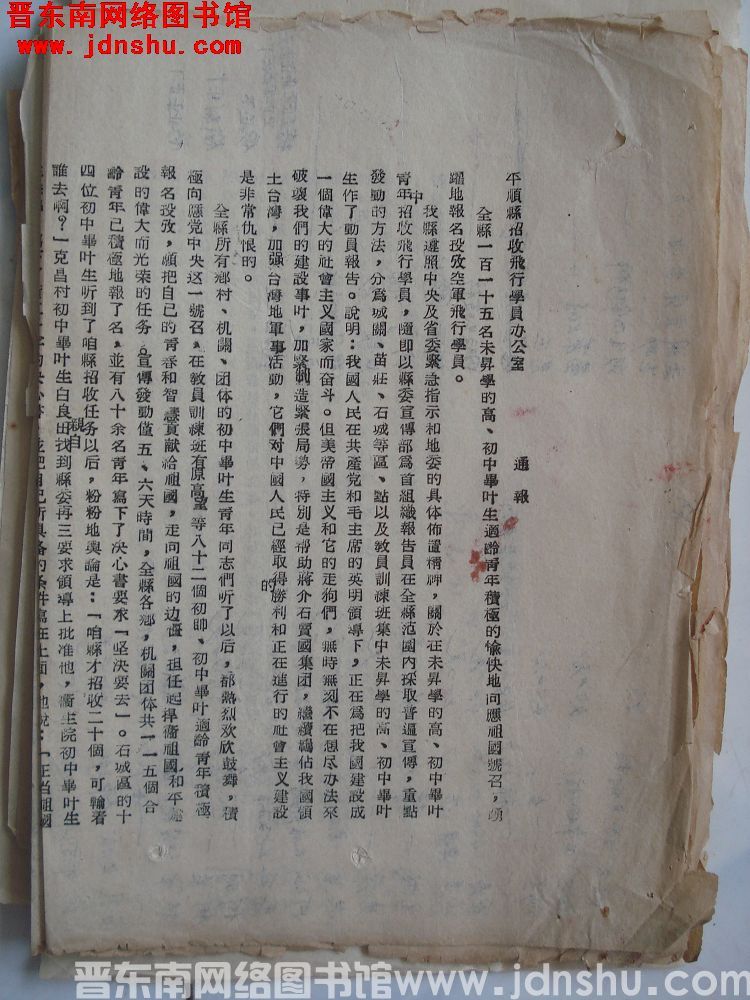 晋东南网络图书馆
www.jdnshu.com
平順縣招收飛行學員办公室
通報
全縣一百一十五名未昇學的高、初中畢叶生適齡青年積極的愉快地响應祖國號召，踴
躍地報名投攷空軍飛行學員。
我縣遵照中央及省委緊急指示和地委的具体佈置精神，關於在未昇學的高、初中畢叶
青年中招收飛行學員，隨即以縣委宣傳部爲首組織報告員在全縣范圍內採取普遍宣傳，重點
發動的方法，分爲城關、苗莊、石城等區、點以及教員訓練班集中未昇學的高、初中畢叶
生作了動員報告。說明：我國人民在共產党和毛主席的英明領導下，正在爲把我國建設成
一個偉大的社會主义國家而奮斗。但美帝國主义和它的走狗們，無時無刻不在想尽办法來
破壞我們的建設事叶，加緊制造緊張局勢，特別是帮助蔣介石賣國集团，繼續霸佔我國領
土台灣，加强台灣地軍事活動，它們对中國人民已經取得的勝利和正在進行的社會主义建設
是非常仇恨的。
全縣所有鄉村、机關、团体的初中畢叶生青年同志們听了以后，都熱烈欢欣鼓舞，積
極向應党中央这一號召，在教員訓練班有原高望等八十二個初師、初中畢叶適齡青年積極
報名投攷，願把自己的青春和智慧貢献給祖國，走向祖國的边疆，担任起捍衞祖國和平建
設的偉大而光荣的任务。宣傳發動僅五、六天時間，全縣各鄉，机關团体共一一五個合
齡青年已積極地報了名，並有八十余名青年寫下了决心書要求「坚决要去」。石城區的十
四位初中畢叶生听到了咱縣招收任务以后，粉粉地輿論是：「咱縣才招收二十個，可輪着
誰去啊？」克昌村初中畢叶生白良田親自找到縣委再三要求領導上批准他，衞生院初中畢叶生
並把自己所具备的条件寫在上面，他說：「正当祖國
晋东南网络图书馆www.jdnshu.com